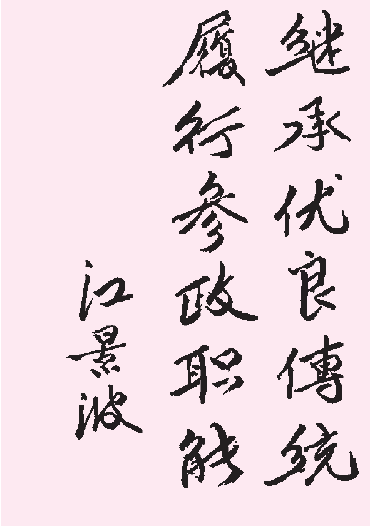 继承优良傳统
履行参政职能
江景波